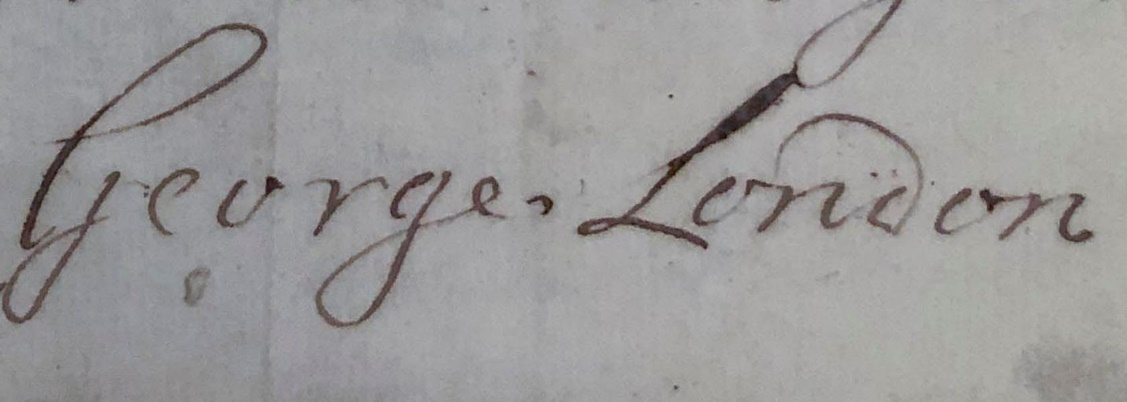 George London